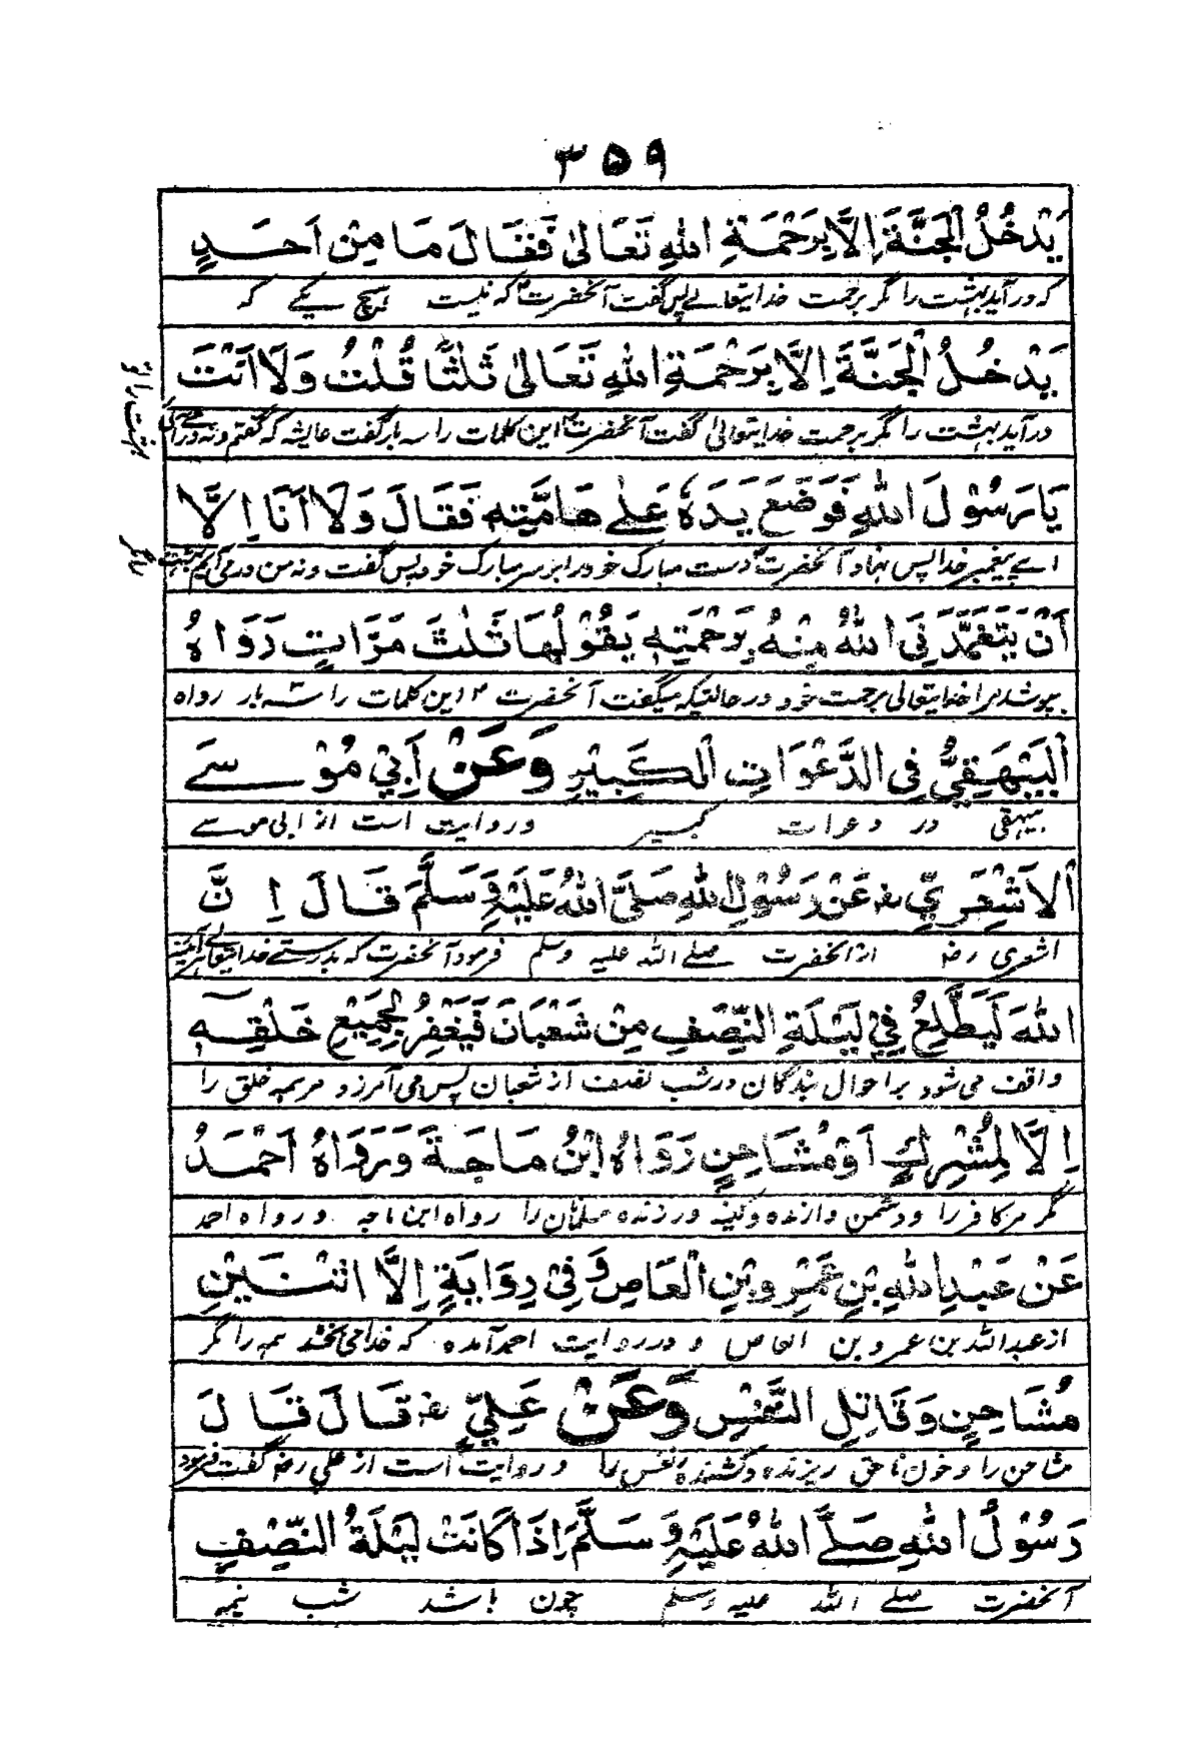 ۳۵۹
يَدْخُلُ الْجَنَّةَ اِلَّا بِرَحْمَةِ اللهِ تَعَالٰى فَقَالَ مَا مِنْ اَحَدٍ
که درآید بهشت را مگر برحمت خدایتعالے پس گفت آنحضرت که نیست هیچ یکے که
يَدْخُلُ الْجَنَّةَ اِلَّا بِرَحْمَةِ اللهِ تَعَالٰى ثَلٰثًا قُلْتُ وَلَا اَنْتَ
درآید بهشت را مگر برحمت خدایتعالی گفت آنحضرت این کلمات را سه بار گفت عایشه که گفتم و نه
يَا رَسُوْلَ اللهِ فَوَضَعَ يَدَهٗ عَلٰے هَامَّتِهٖ فَقَالَ وَلَا اَنَا اِلَّا
اے پیغمبر خدا پس نهاد آنحضرت دست مبارک خود را بر سر مبارک خود پس گفت و نه من درمی آیم
اَنْ يَّتَغَمَّدَنِىَ اللهُ مِنْهُ بِرَحْمَتِهٖ يَقُوْلُهَا ثَلٰثَ مَرَّاتٍ رَوَاهُ
بپوشد مرا خدایتعالی برحمت خود در حالتیکه میگفت آنحضرت این کلمات را سه بار رواه
الْبَيْهَقِيُّ فِى الدَّعْوَاتِ الْكَبِيْرِ وَعَنْ اَبِيْ مُوْسٰے
بیهقی در دعوات کبیر و روایت است از ابی موسے
الْاَشْعَرِيِّ رض عَنْ رَسُوْلِ اللهِ صَلَّى اللهُ عَلَيْهِ وَسَلَّمَ قَالَ اِنَّ
اشعری رض از آنحضرت صلے الله علیه وسلم فرمود آنحضرت که بدرستے خدایتعالے
اللهَ لَيَطَّلِعُ فِيْ لَيْلَةِ النِّصْفِ مِنْ شَعْبَانَ فَيَغْفِرُ لِجَمِيْعِ خَلْقِهٖ
واقف می شود بر احوال بندگان در شب نصف از شعبان پس می آمرزد مر همه خلق را
اِلَّا لِمُشْرِكٍ اَوْ مُشَاحِنٍ رَوَاهُ ابْنُ مَاجَةَ وَرَوَاهُ اَحْمَدُ
مگر مر کافر را و دشمن دارنده و کینه ورزنده مسلمانان را رواه ابن ماجه و رواه احمد
عَنْ عَبْدِ اللهِ بْنِ عَمْرِو بْنِ الْعَاصِ وَفِيْ رِوَايَةٍ اِلَّا اثْنَيْنِ
از عبدالله بن عمرو بن العاص و در روایت احمد آمده که خدا می بخشد همه را مگر
مُشَاحِنٍ وَقَاتِلِ النَّفْسِ وَعَنْ عَلِيٍّ رض قَالَ قَالَ
مشاحن را و خون ناحق ریزنده و کشنده نفس را و روایت است از علی رض گفت فرمود
رَسُوْلُ اللهِ صَلَّے اللهُ عَلَيْهِ وَسَلَّمَ اِذَا كَانَتْ لَيْلَةُ النِّصْفِ
آنحضرت صلے الله علیه وسلم چون باشد شب نیمه